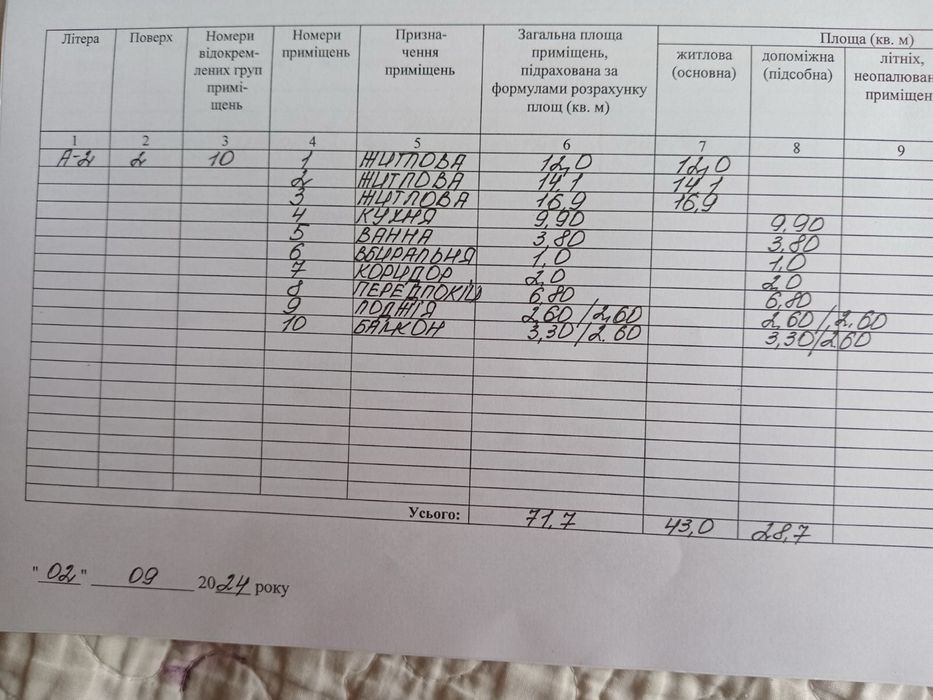 Літера Поверх Номери відокрем- лених груп примі- щень Номери приміщень Призна- чення приміщень Загальна площа приміщень, підрахована за формулами розрахунку площ (кв. м) Площа (кв. м)
житлова (основна) допоміжна (підсобна) літніх, неопалюван приміщен
1 2 3 4 5 6 7 8 9
А-2 2 10 1 ЖИТЛОВА 12,0 12,0
2 ЖИТЛОВА 14,1 14,1
3 ЖИТЛОВА 16,9 16,9
4 КУХНЯ 9,90 9,90
5 ВАННА 3,80 3,80
6 ВБИРАЛЬНЯ 1,0 1,0
7 КОРИДОР 2,0 2,0
8 ПЕРЕДПОКІЙ 6,80 6,80
9 ЛОДЖІЯ 2,60/2,60 2,60/2,60
10 БАЛКОН 3,30/2.60 3,30/2,60
Усього: 71,7 43,0 28,7
"02" 09 2024 року